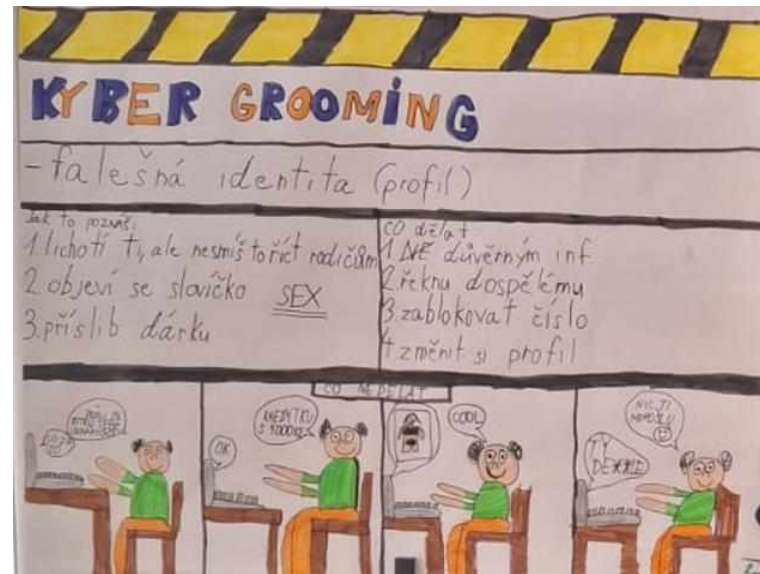 KYBER GROOMING
- falešná identita (profil)
Jak to poznáš:
1. lichotí ti, ale nesmíš to říct rodičům
2. objeví se slovíčko SEX
3. příslib dárku
CO dělat
1 NE důvěrným inf
2. řeknu dospělému
3. zablokovat číslo
4. změnit si profil
CO NEDĚLAT
OK
KREDITKU
COOL